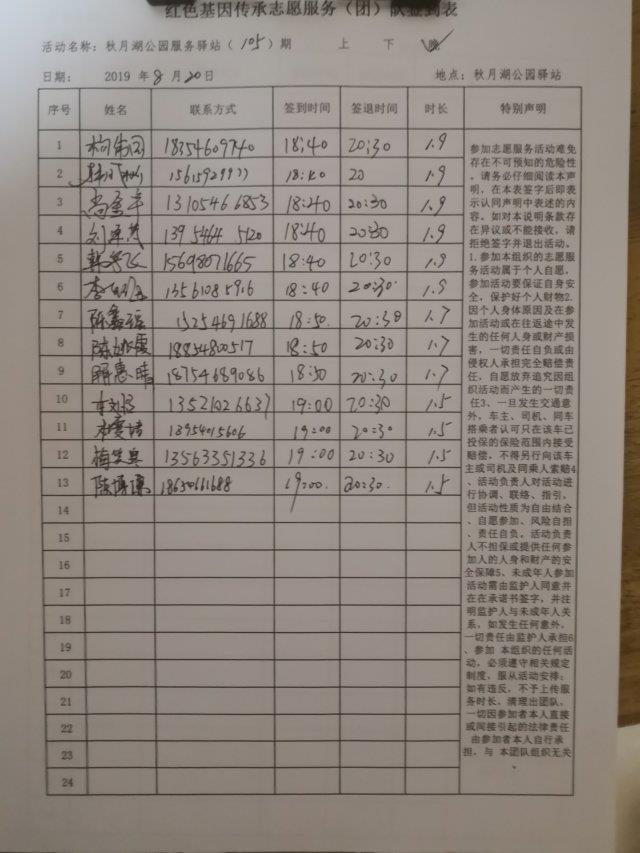 红色基因传承志愿服务（团）队签到表
活动名称：秋月湖公园服务驿站（105）期 上 下 晚
日期： 2019 年 8 月 20 日 地点：秋月湖公园驿站
序号 姓名 联系方式 签到时间 签退时间 时长 特别声明
1 18354609740 18:40 20:30 1.9
2 18:40 20 1.9
3 13105466853 18:40 20:30 1.9
4 5120 18:40 20:30 1.9
5 15698071665 18:40 20:30 1.9
6 18:40 20:30 1.9
7 15254691688 18:50 20:30 1.7
8 18854800517 18:50 20:30 1.7
9 18754689086 18:50 20:30 1.7
10 13521026637 19:00 20:30 1.5
11 18954015606 19:00 20:30 1.5
12 13563351336 19:00 20:30 1.5
13 陈博 18650661688 19:00 20:30 1.5
14
15
16
17
18
19
20
21
22
23
24
参加志愿服务活动难免
存在不可预知的危险性
。请务必仔细阅读本声
明，在本表签字后即表
示认同声明中表述的内
容。如对本说明条款存
在异议或不能接收，请
拒绝签字并退出活动。
1.参加本组织的志愿服
务活动属于个人自愿，
参加活动要保证自身安
全，保护好个人财物2.
因个人身体原因及在参
加活动或在往返途中发
生的任何人身或财产损
害，一切责任自负或由
侵权人承担完全赔偿责
任，自愿放弃追究因组
织活动而产生的一切责
任3、一旦发生交通意
外，车主、司机、同车
搭乘者认可只在该车已
投保的保险范围内接受
赔偿，不得另行向该车
主或司机及同乘人索赔4
、活动负责人对活动进
行协调、联络、指引，
但活动性质为自由结合
、自愿参加、风险自担
、责任自负，活动负责
人不担保或提供任何参
加人的人身和财产的安
全保障5、未成年人参加
活动需由监护人同意并
在在承诺书签字，并注
明监护人与未成年人关
系，如发生任何意外，
一切责任由监护人承担6
、参加 本组织的任何活
动，必须遵守相关规定
制度，服从活动安排；
如有违反，不予上传服
务时长，清理出团队，
一切因参加者本人直接
或间接引起的法律责任
由参加者本人自行承
担，与 本团队组织无关
。